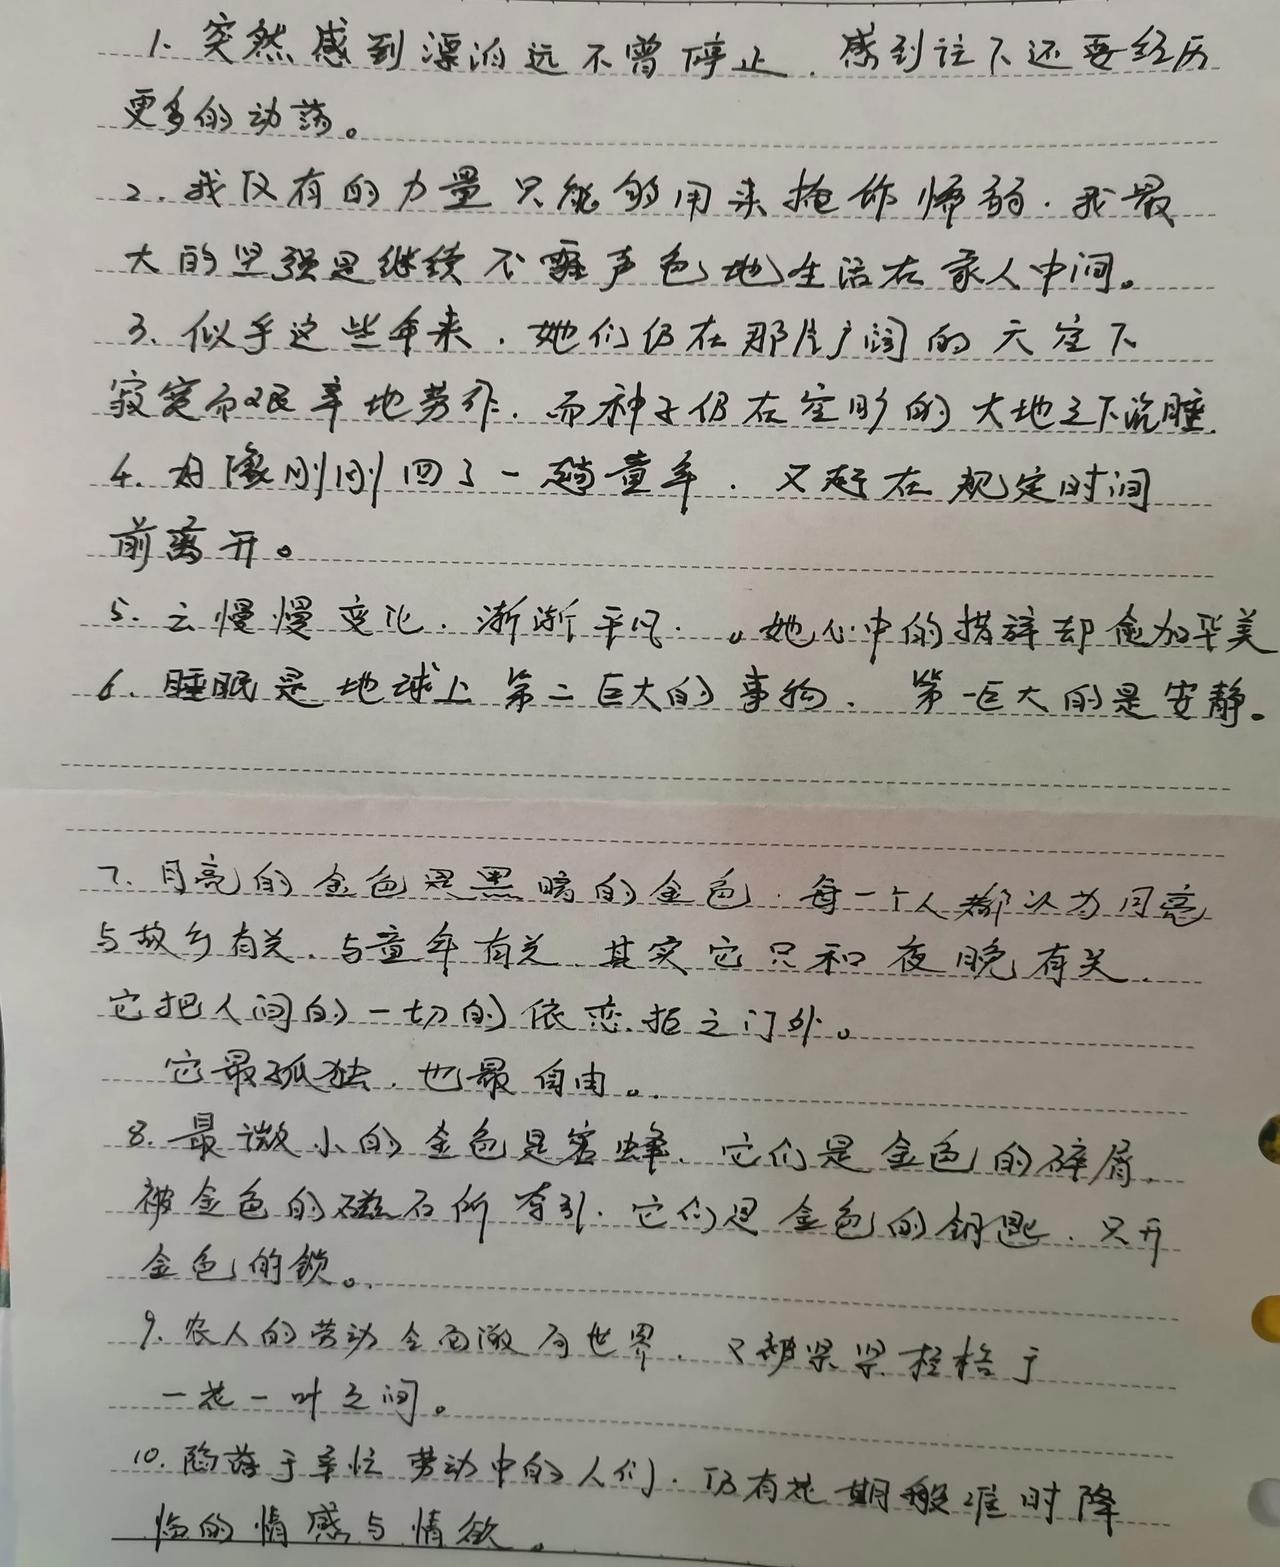 1. 突然感到漂泊远不曾停止，感到往下还要经历
更多的动荡。
2. 我仅有的力量只能够用来掩饰懦弱，我最
大的坚强是继续不露声色地生活在家人中间。
3. 似乎这些年来，她们仍在那片广阔的天空下
寂寞而艰辛地劳作，而种子仍在空旷的大地之下沉睡.
4. 好像刚刚回了一趟童年，又赶在规定时间
前离开。
5. 云慢慢变化，渐渐平凡。她心中的措辞却愈加华美
6. 睡眠是地球上第二巨大的事物，第一巨大的是安静。
7. 月亮的金色是黑暗的金色，每一个人都以为月亮
与故乡有关，与童年有关，其实它只和夜晚有关，
它把人间的一切的依恋拒之门外。
它最孤独，也最自由。
8. 最微小的金色是蜜蜂，它们是金色的碎屑，
被金色的磁石所牵引，它们是金色的钥匙，只开
金色的锁。
9. 农人的劳动全面敞向世界，又被紧紧桎梏于
一花一叶之间。
10. 陷落于辛忙劳动中的人们，仍有花期般准时降
临的情感与情欲。